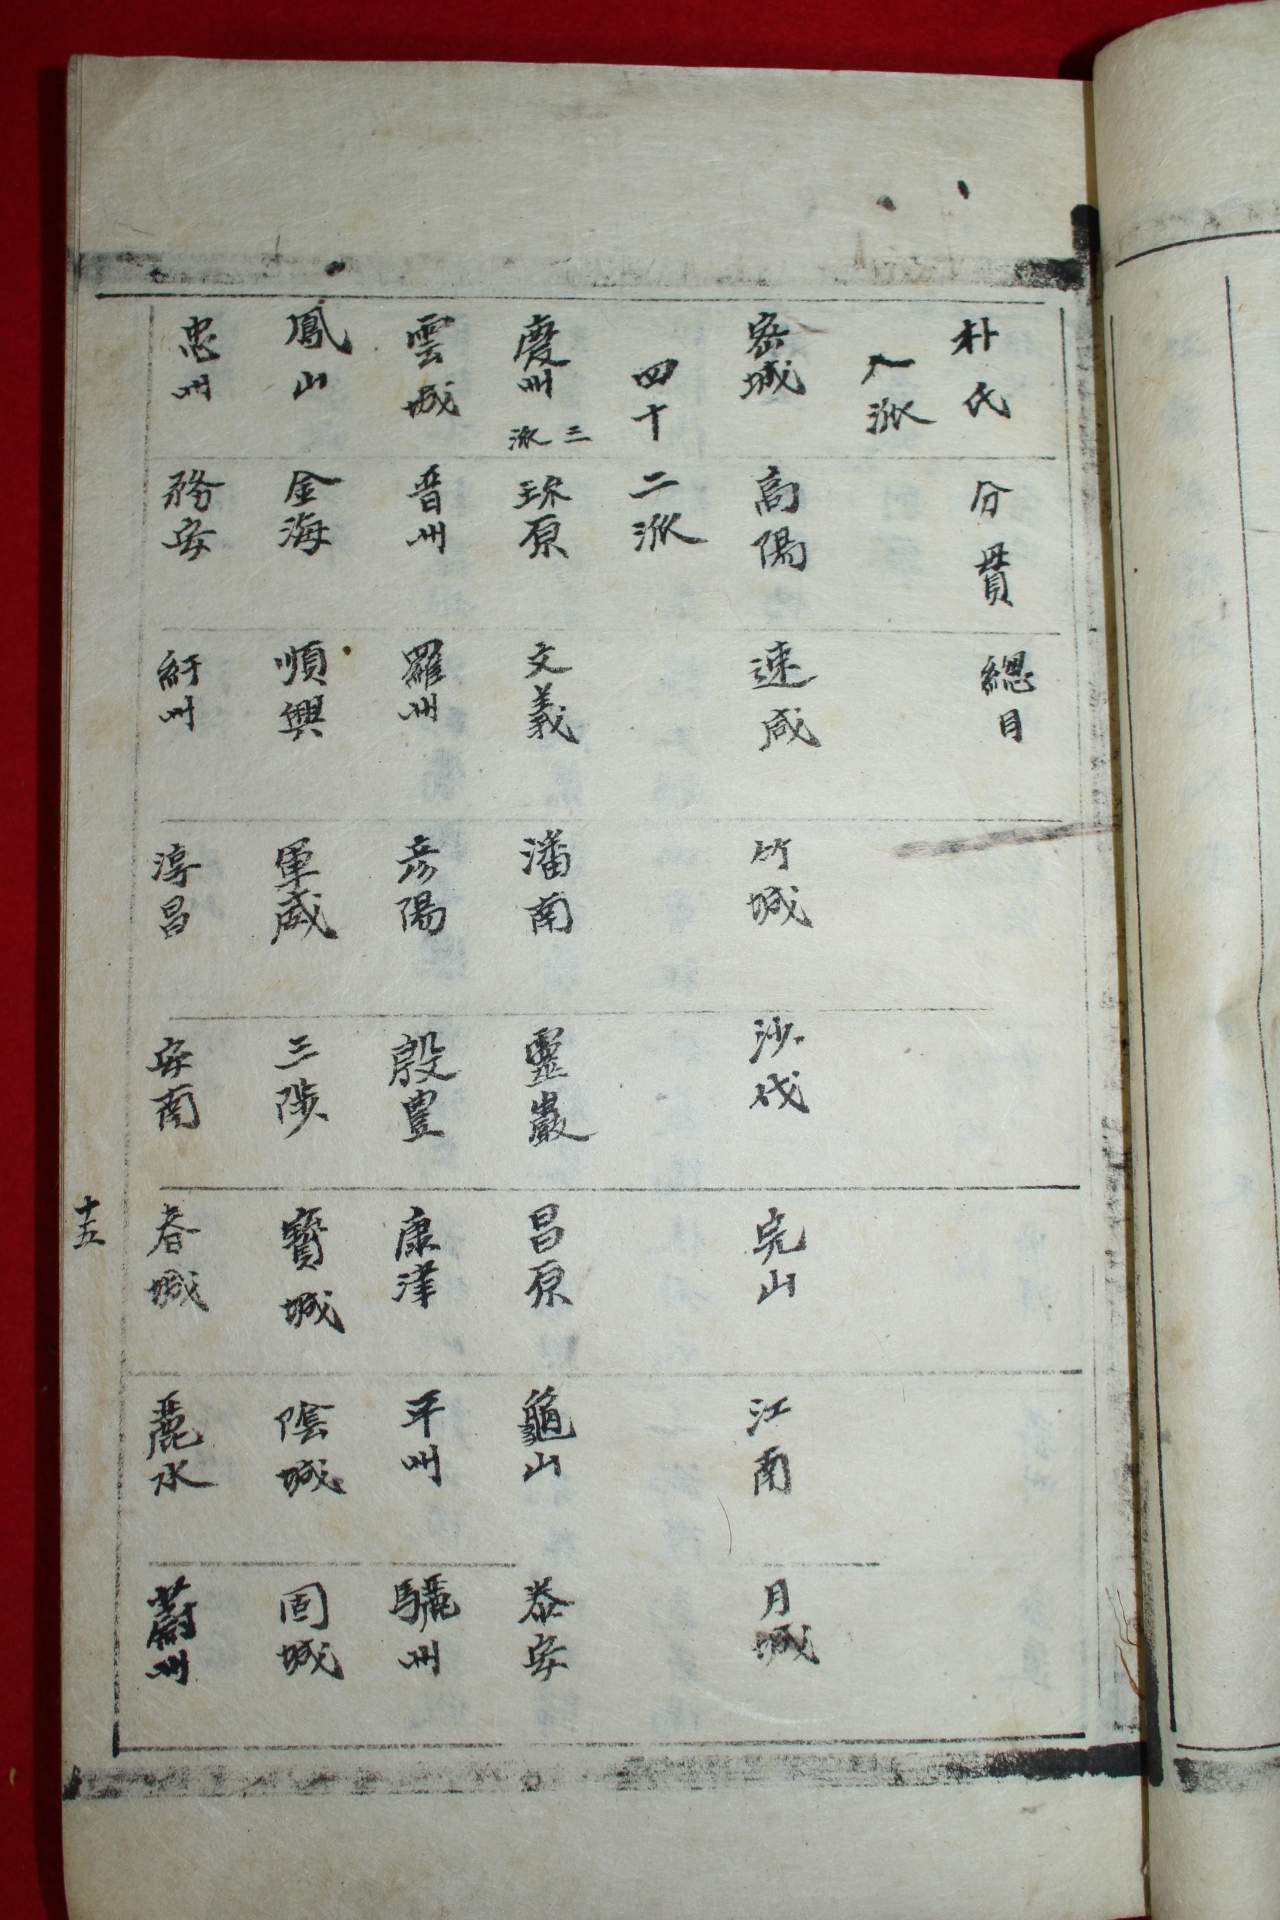 朴氏分貫總目
八派
密城 高陽 速咸 竹城 沙伐 完山 江南 月城
四十二派
慶州 三派 珎原 文義 潘南 靈巖 昌原 龜山 泰安
雲城 晋州 羅州 彦陽 殷豊 康津 平州 驪州
鳳山 金海 順興 軍威 三陟 寶城 陰城 固城
忠州 務安 紆州 淳昌 安南 春城 麗水 蔚州
十五